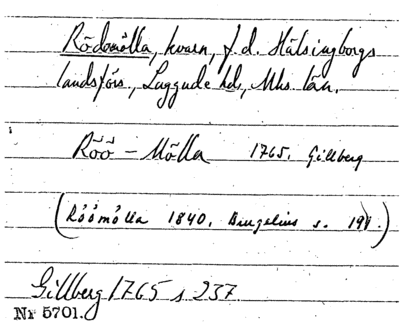 Rödömölla, kvarn, f.d. Hälsingborgs
landsförs., Luggude hd, Mhs. län.
Röö – Mölla 1765. Gillberg
(Röömölla 1840. Brugelius s.
Gillberg 1765 s 237
Nr 5701.